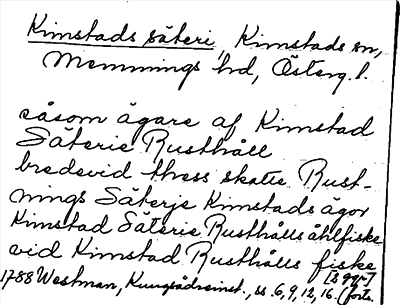 Kimstads säteri, Kimstads sn,
Memmings hd, Österg. l.
såsom ägare af Kimstad
Säterie Rusthåll
bredevid thess skatte Rust-
nings Säterje Kimstads ägor
Kimstad Säterie Rusthålls åhlfiske
vid Kimstad Rusthålls fiske
1788 Westman, Kungsådreinst., ss. 6, 9, 12, 16. (forts.